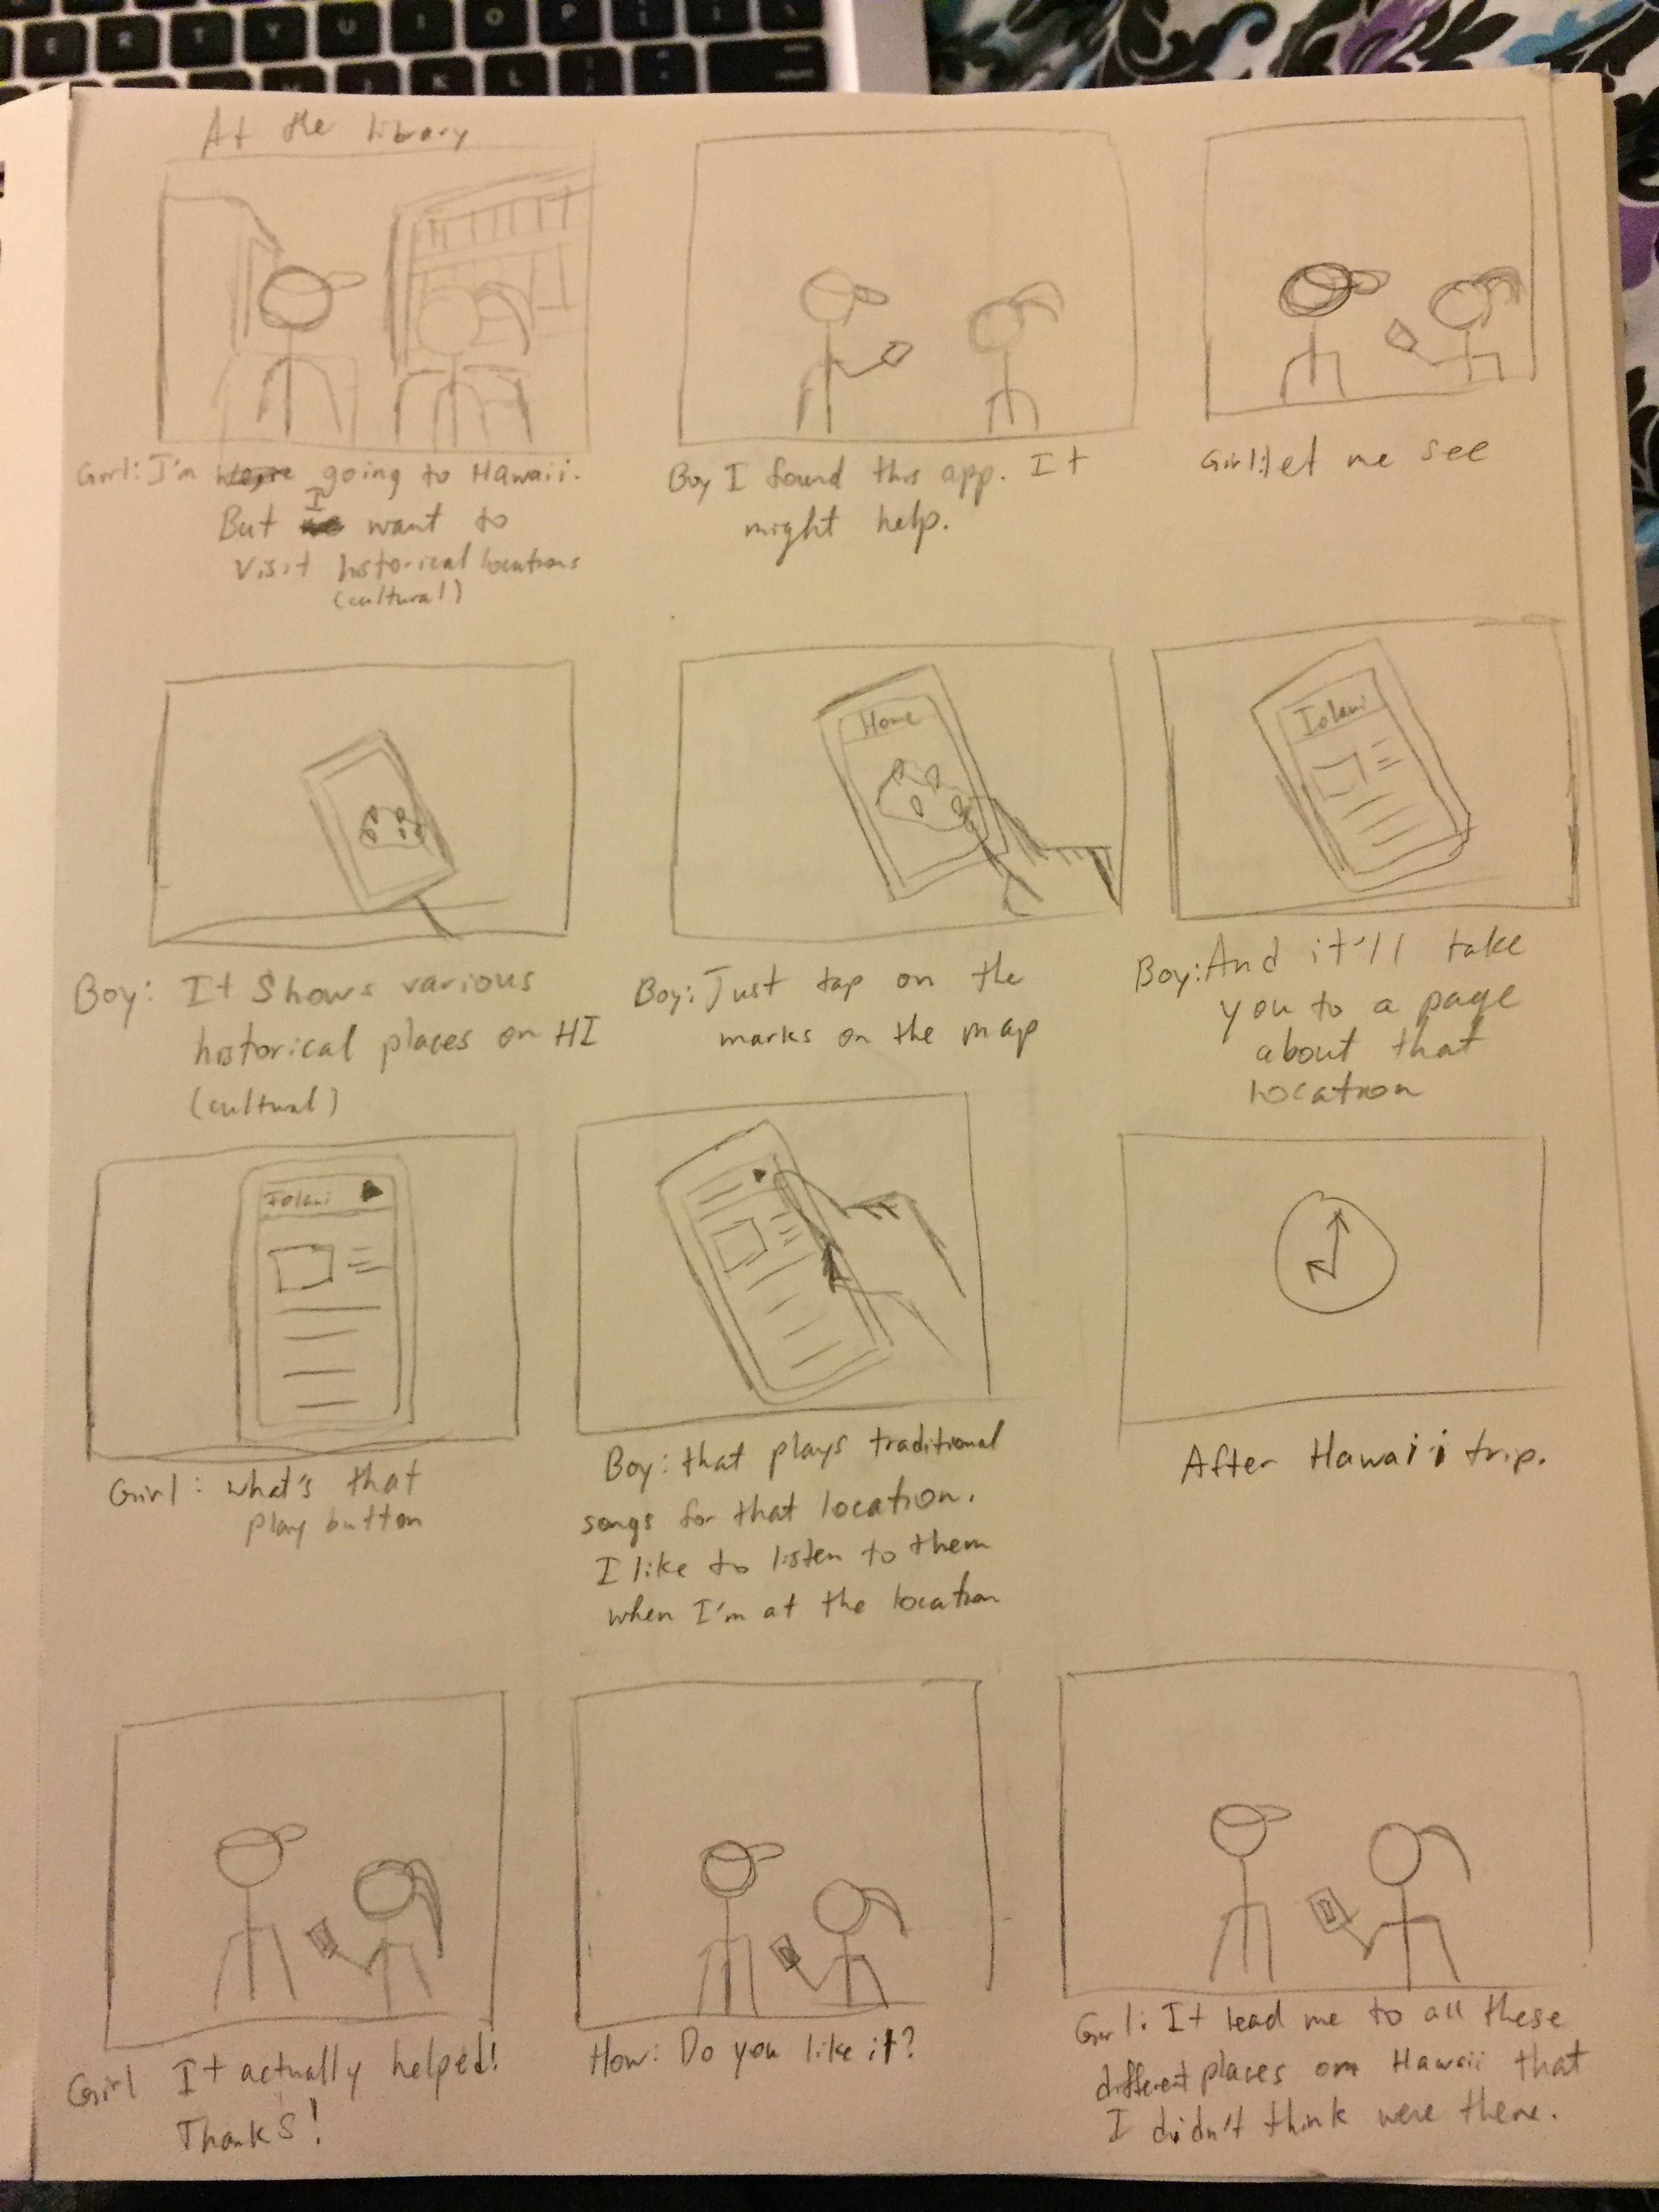 E R T Y U I O P
J K L
At the library
Girl: I'm going to Hawaii.
But I want to
visit historical locations
(cultural)
Boy I found this app. It
might help.
Girl: let me see
Home
Iolani
Boy: It shows various
historical places on HI
(cultural)
Boy: Just tap on the
marks on the map
Boy: And it'll take
you to a page
about that
location
Iolani
Girl: what's that
play button
Boy: that plays traditional
songs for that location.
I like to listen to them
when I'm at the location
After Hawaii trip.
Girl It actually helped!
Thanks!
How: Do you like it?
Girl: It lead me to all these
different places on Hawaii that
I didn't think were there.